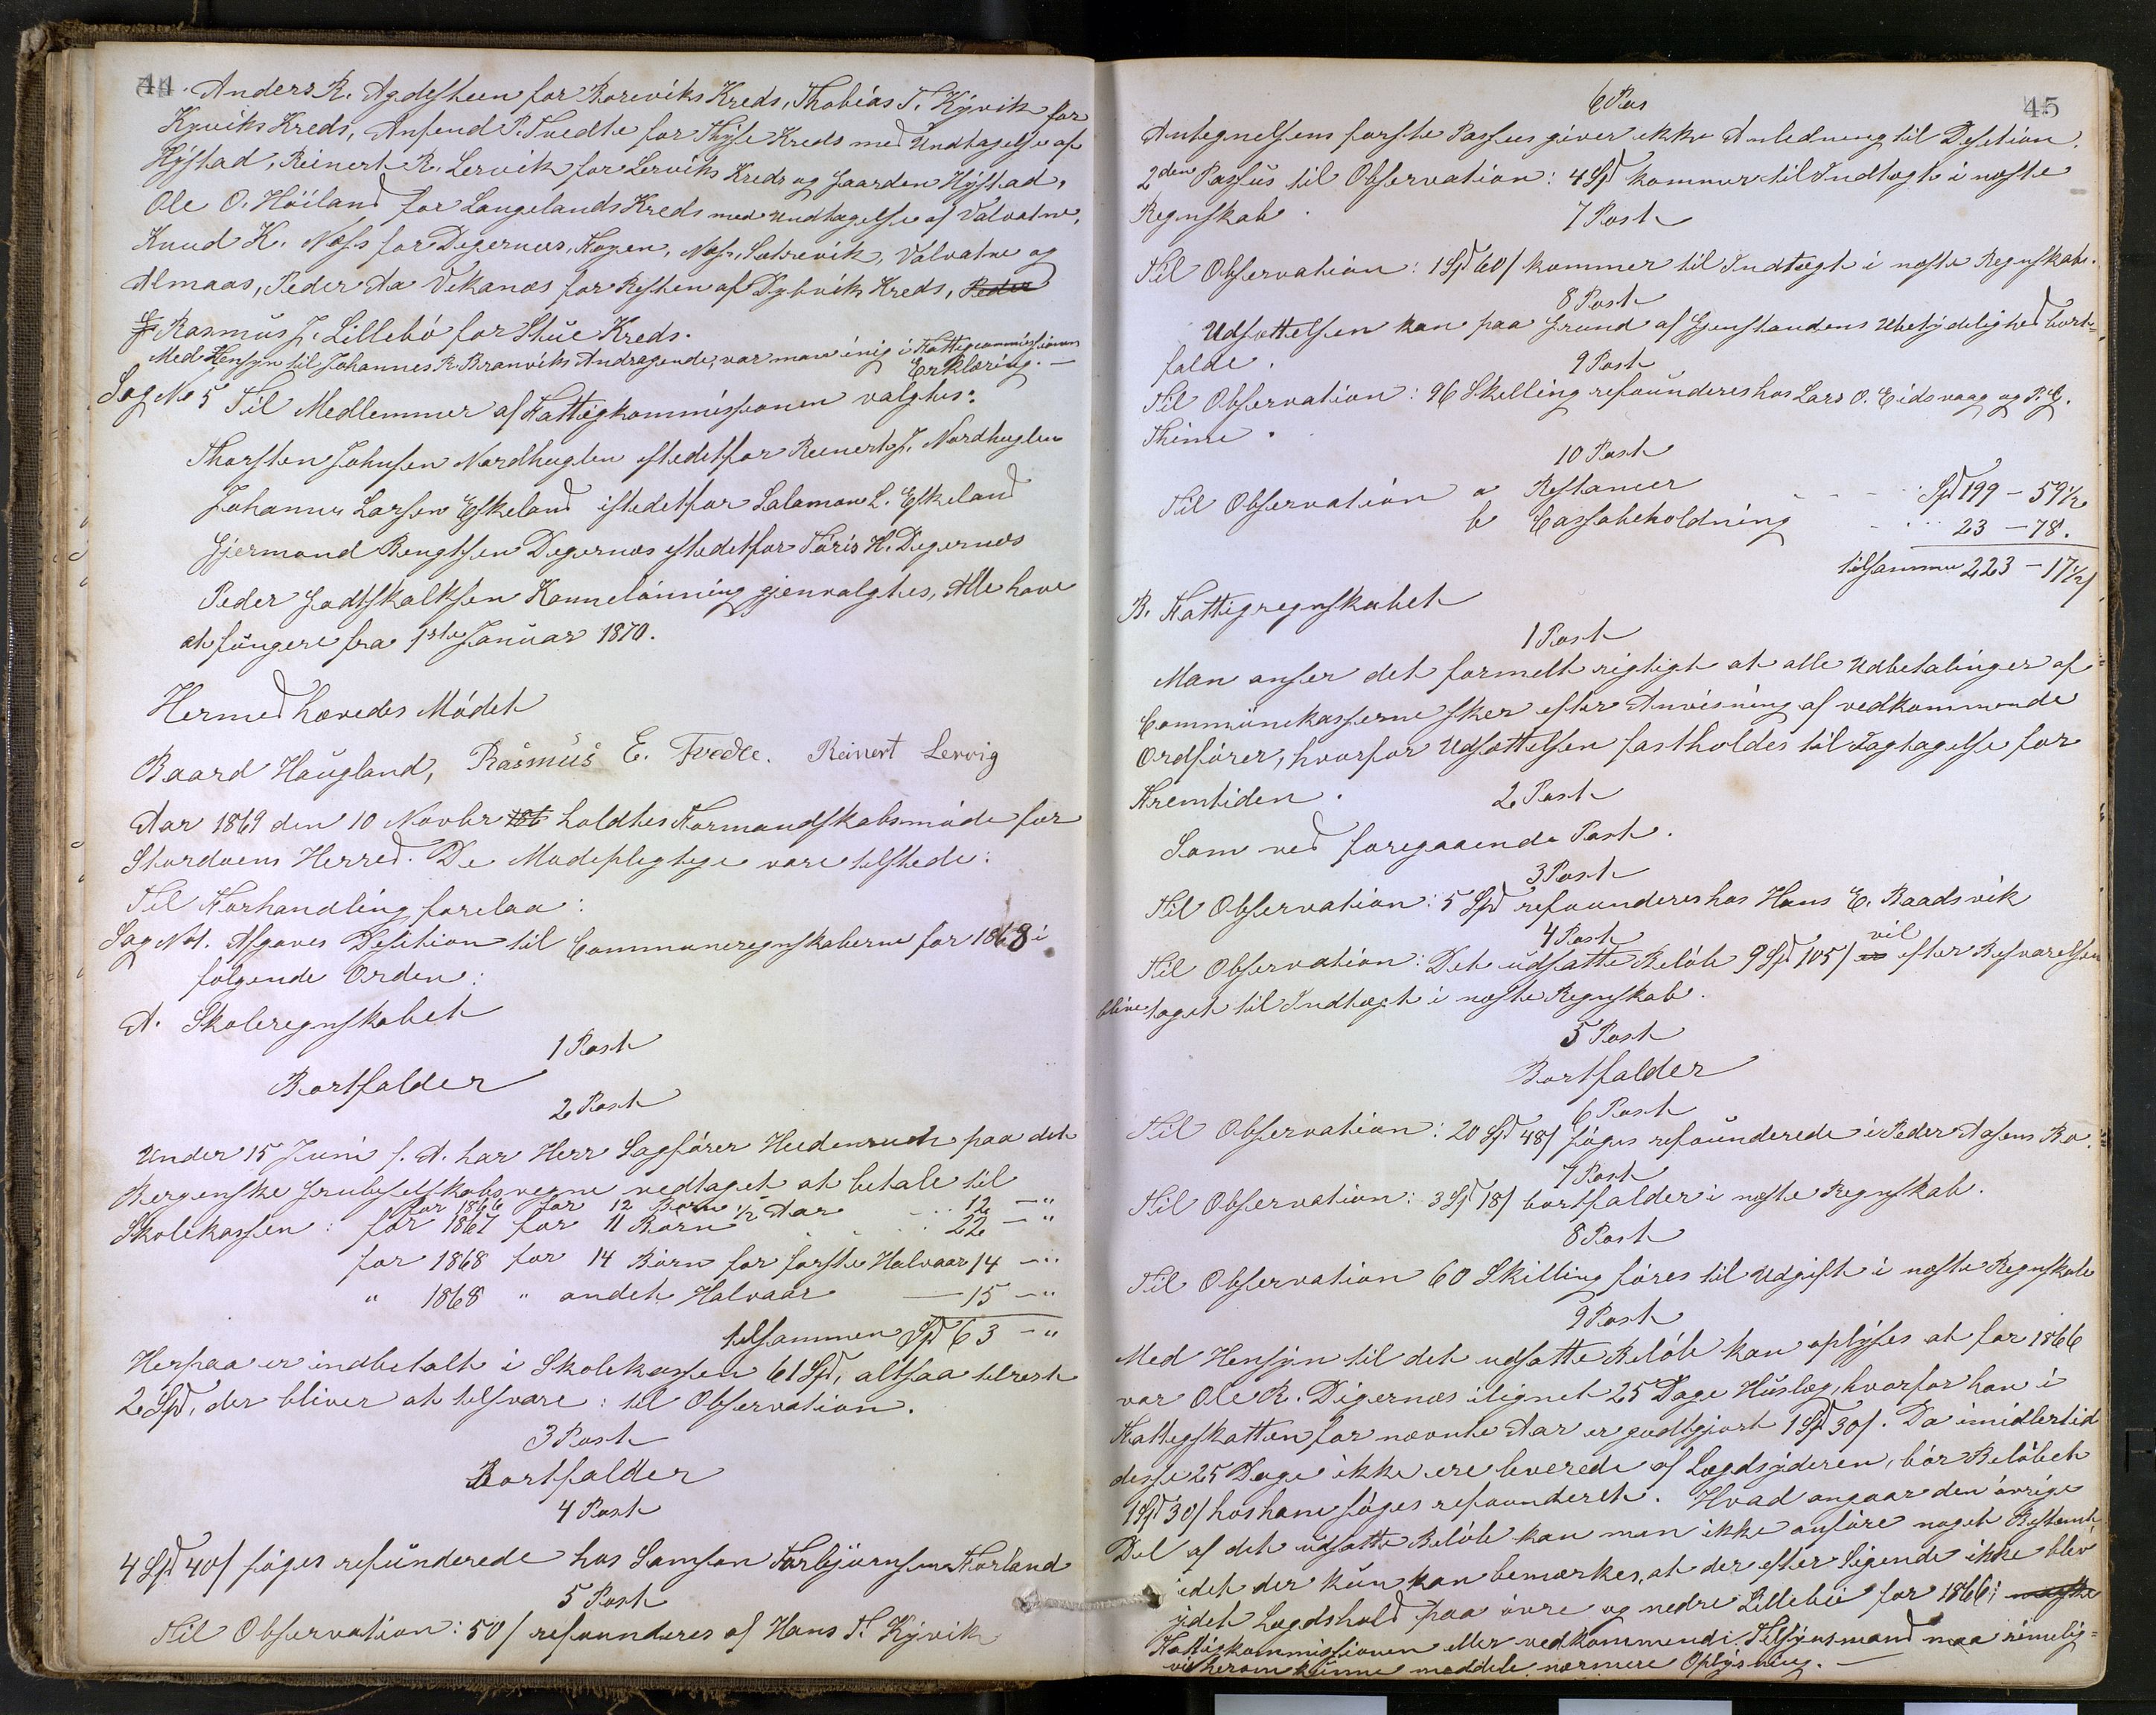 44
Anders R. Agdesteen for Borevíks Kreds, Thobias T. Kyvik for
Kyvíks Kreds, Anfend P. Tvedte for Thyse Kreds med Undtagelse af
Hystad, Reinert R. Lervik for Lerviks Kreds og Gaarden Hystad,
Ole O. Höiland for Langelands Kreds med Undtagelse af Valvatne,
Knud K. Næss for Degernæs, Hagen, Næss, Sætrevik, Valvatne og
Almaas, Peder Aa Vikanæs for Resten af Dybviks Kreds, Peder
Rasmus J. Lillebö for Stue Kreds.
Med Hensyn til Johannes R. Branviks Andragende, var man énig i Fattigcommissionens
Erklæring. —
Sag No 5 Til Medlemmer af Fattigkommissionen valgtes:
Thorsten Johnsen Nordhuglen istedetfor Reinert J. Nordhuglen
Johannes Larsen Eskeland istedetfor Salamon L. Eskeland
Gjermond Bengtsen Degernæs istedetfor Töris H. Degernæs
Peder Godtskalksen Kannelönning gjenvalgtes, Alle have
at fungere fra 1ste Januar 1870.
Hermed hævedes Mödet
Baard Haugland, Rasmus E. Tvedte. Reinert Lervig
Aar 1869 den 10 Novbr 186 holdtes Formandskabsmöde for
Stordöens Herred. De Mödepligtige vare tilstede:
Til Forhandling forelaa:
Sag No 1. Afgaves Desition til Communeregnskaberne for 1868 i
fölgende Orden:
A. Skoleregnskabet
1 Post
Bortfalder
2 Post
Under 15 Juni s. A. har Herr Sagförer Heidenreich paa det
Bergenske Grubeselskabs vegne vedtaget at betale til
for 1866 for 12 Börn 1/2 Aar 12 — "
Skolekassen: for 1867 for 11 Börn 22 — "
for 1868 for 14 Börn for förste Halvaar 14 — "
" 1868 " andet Halvaar — 15 — "
tilsammen Spd 63 — "
Herpaa er indbetalt i Skolekassen 61 Spd, altsaa tilrest
2 Spd, der bliver at tilsvare: til Observation.
3 Post
Bortfalder
4 Post
4 Spd 40 s söges refunderede hos Samson Torbjörnsen Horland
5 Post
Til Observation: 50 s refunderes af Hans T. Kyvik
45
6 Pos
Antegnelsens förste Passus giver ikke Anledning til Desition.
2den Passus til Observation: 4 Spd kommer til Indtægt i næste
Regnskab.
7 Post
Til Observation: 1 Spd 60 s kommer til Indtægt i næste Regnskab.
8 Post
Udsættelsen kan paa Grund af Gjenstandens Ubetydelighed bort-
falde.
9 Post
Til Observation: 96 Skelling refounderes hos Lars O. Eidsvaag og P. E.
Thime.
10 Post
Til Observation a Restancer Spd 199 — 59 1/2
b Cassabeholdning 23 — 78.
tilsammen 223 — 17 1/2 s
B. Fattigregnskabet
1 Post
Man anser det formelt rigtigt at alle Udbetalinger af
Communekasserne sker efter Anvisning af vedkommende
Ordförer, hvorfor Udsættelsen fastholdes til Iagtagelse for
Fremtiden.
2 Post
Som ved foregaaende Post.
3 Post
Til Observation: 5 Spd refounderes hos Hans E. Baadsvik
4 Post
Til Observation: Det udsatte Belöb 9 Spd 105 s er vil efter Besvarelsen
blive taget til Indtægt i næste Regnskab.
5 Post
Bortfalder
6 Post
Til Observation: 20 Spd 48 s söges refounderede i Peder Aasens Bo.
7 Post
Til Observation: 3 Spd 18 s bortfalder i næste Regnskab.
8 Post
Til Observation 60 Skilling föres til Udgift i næste Regnskab
9 Post
Med Hensyn til det udsatte Belöb kan oplyses at for 1866
var Ole R. Digernæs ilignet 25 Dage Huslæg, hvorfor han i
Fattigskatten for nævnte Aar er godtgjort 1 Spd 30 s. Da imidlertid
desse 25 Dage ikke ere leverede af Lægdsyderen, bör Belöbet
1 Spd 30 s hos ham söges refounderet. Hvad angaar den övrige
Del af det udsatte Belöb kan man ikke anföre noget Bestemt
idet der kun kan bemærkes, at der efter Sigende ikke blev
ydet Lægdshold paa övre og nedre Lillebö for 1866;
Fattigkommissionen eller vedkommende Tilsynsmand maa rimelig-
vis herom kunne meddele nærmere Oplysning. —